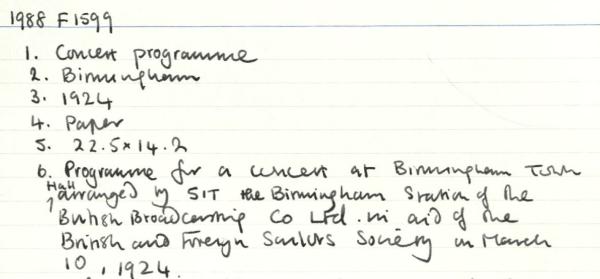 1988 F1599
1. Concert programme
2. Birmingham
3. 1924
4. Paper
5. 22.5×14.2
6. Programme for a concert at Birmingham Town
Hall
arranged by 5IT the Birmingham Station of the
British Broadcasting Co Ltd. in aid of the
British and Foreign Sailors Society on March
10, 1924.